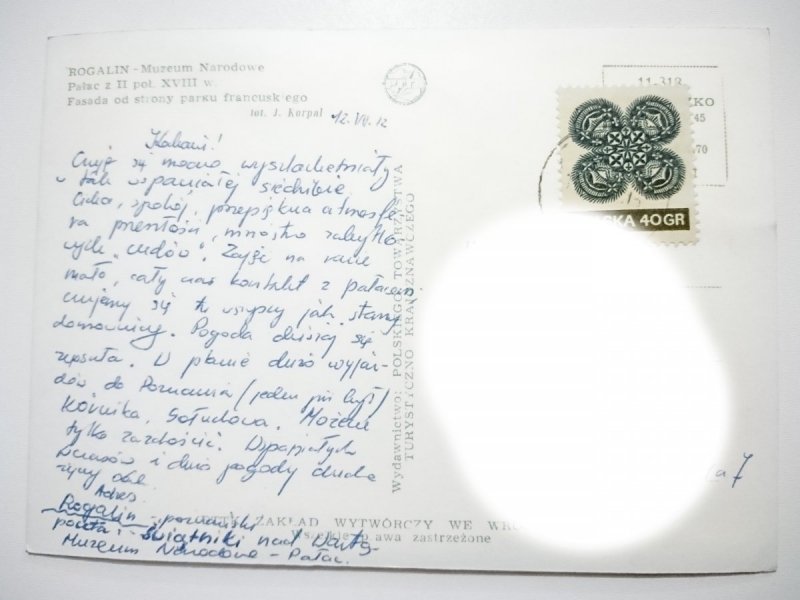 ROGALIN - Muzeum Narodowe
Pałac z II poł. XVIII w.
Fasada od strony parku francuskiego
fot. J. Korpal
12.VII.72
Kochani!
Czuję się mocno wyszlachetniały
w tak wspaniałej siedzibie.
Cisza, spokój, przepiękna atmosfe
ra przeszłości, mnóstwo zabytko
wych "cudów". Zajęć na razie
mało, cały czas kontakt z pałacem
czujemy się tu wszyscy jak starzy
domownicy. Pogoda dzisiaj się
zepsuła. W planie dużo wyjaz-
dów do Poznania / jeden już był /
Kórnika, Gołuchowa. Możecie
tylko zazdrościć. Wspaniałych
wczasów i dużo pogody ducha
życzy
Adres:
Rogalin, poznański
poczta: Świątniki nad Wartą
Muzeum Narodowe - Pałac.
Wydawnictwo: POLSKIEGO TOWARZYSTWA
TURYSTYCZNO KRAJOZNAWCZEGO
ZAKŁAD WYTWÓRCZY WE WR
Wszelkie prawa zastrzeżone
11-318
ZKO
45
70
SKA 40GR
a 7